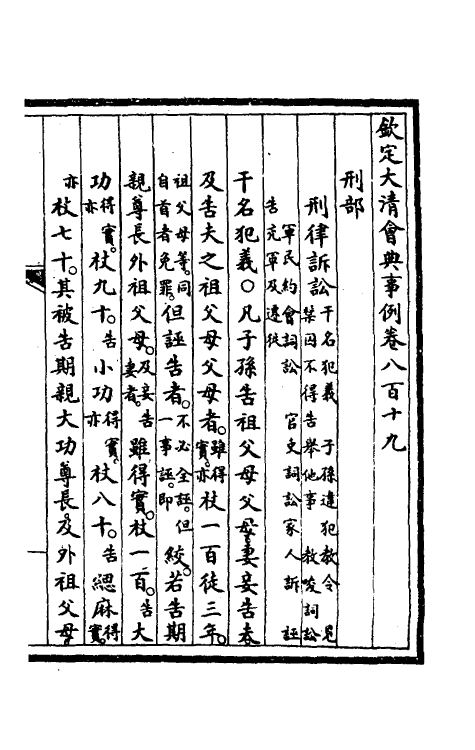 欽定大清會典事例卷八百十九
刑部
刑律訴訟 干名犯義 子孫違犯教令 見禁囚不得告舉他事 教唆詞訟
軍民約會詞訟 官吏詞訟家人訴 誣告充軍及遷徙
干名犯義○凡子孫告祖父母父母妻妾告夫
及告夫之祖父母父母者。雖得實。亦杖一百徒三年。
祖父母等。同自首者免罪。但誣告者。不必全誣。但一事誣。即絞。若告期
親尊長外祖父母。及妾告妻者。雖得實。杖一百。告大
功得實。亦杖九十。告小功得實。亦杖八十。告緦麻得實。
亦杖七十。其被告期親大功尊長。及外祖父母